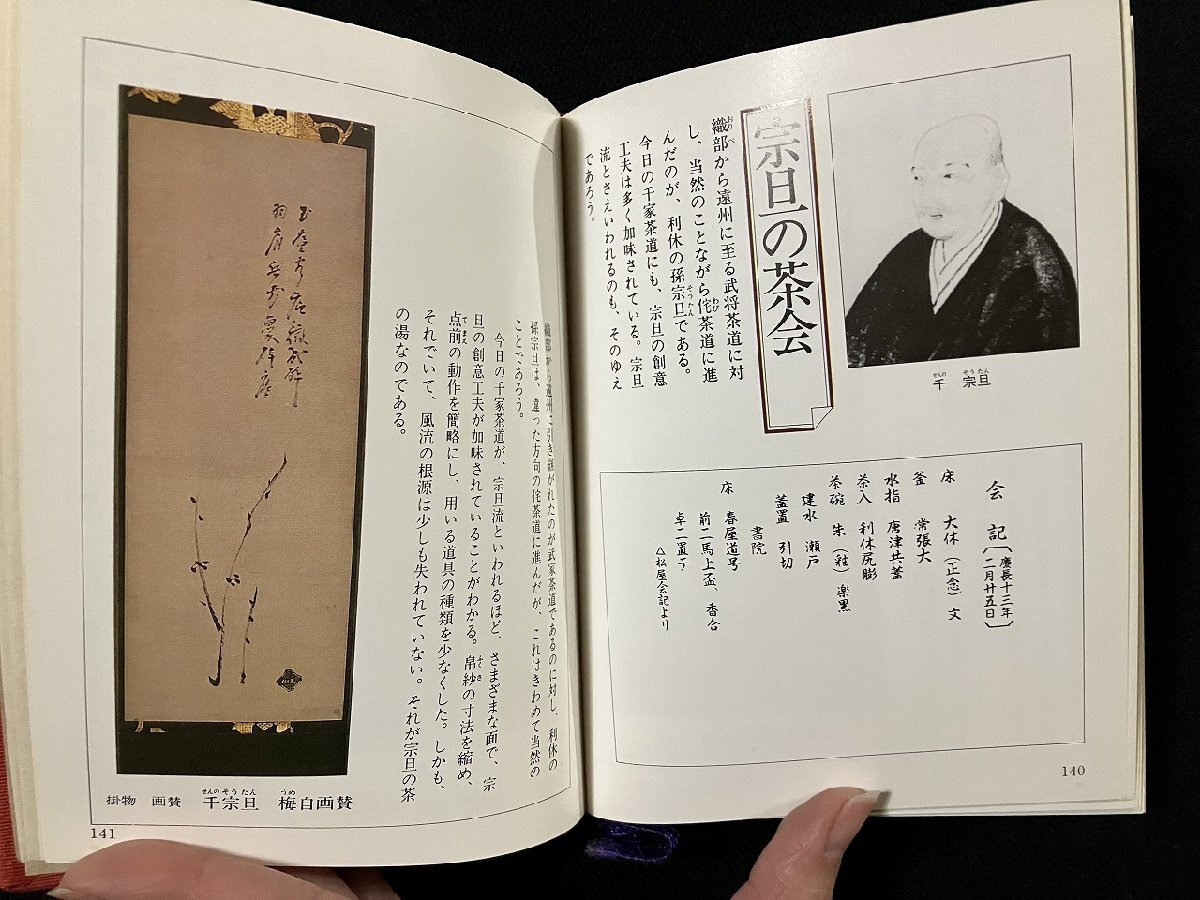 宗旦の茶会
織部から遠州に至る武将茶道に対
し、当然のことながら侘茶道に進
んだのが、利休の孫宗旦である。
今日の千家茶道にも、宗旦の創意
工夫は多く加味されている。宗旦
流とさえいわれるのも、そのゆえ
であろう。
千　宗旦
せんの　そうたん
会記〔慶長十三年
二月廿五日〕
床　大休（正念）文
釜　常張大
水指　唐津共蓋
茶入　利休尻膨
茶碗　朱（社）楽黒
建水　瀬戸
蓋置　引切
書院
床　春屋道号
前ニ馬上盃、香合
卓ニ置テ
△松屋会記より
140
織部から遠州に引き継がれたのが武家茶道であるのに対し、利休の
孫宗旦は、違った方向の侘茶道に進んだが、これはきわめて当然の
ことであろう。
今日の千家茶道が、宗旦流といわれるほど、さまざまな面で、宗
旦の創意工夫が加味されていることがわかる。帛紗の寸法を縮め、
点前の動作を簡略にし、用いる道具の種類を少なくした。しかも、
それでいて、風流の根源は少しも失われていない。それが宗旦の茶
の湯なのである。
掛物　画賛　千宗旦　梅自画賛
141